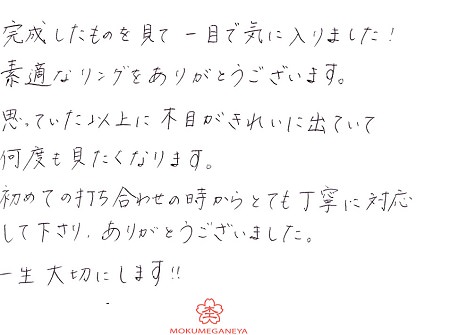 完成したものを見て一目で気に入りました！
素適なリングをありがとうございます。
思っていた以上に木目がきれいに出ていて
何度も見たくなります。
初めての打ち合わせの時からとても丁寧に対応
して下さり、ありがとうございました。
一生大切にします!!
MOKUMEGANEYA